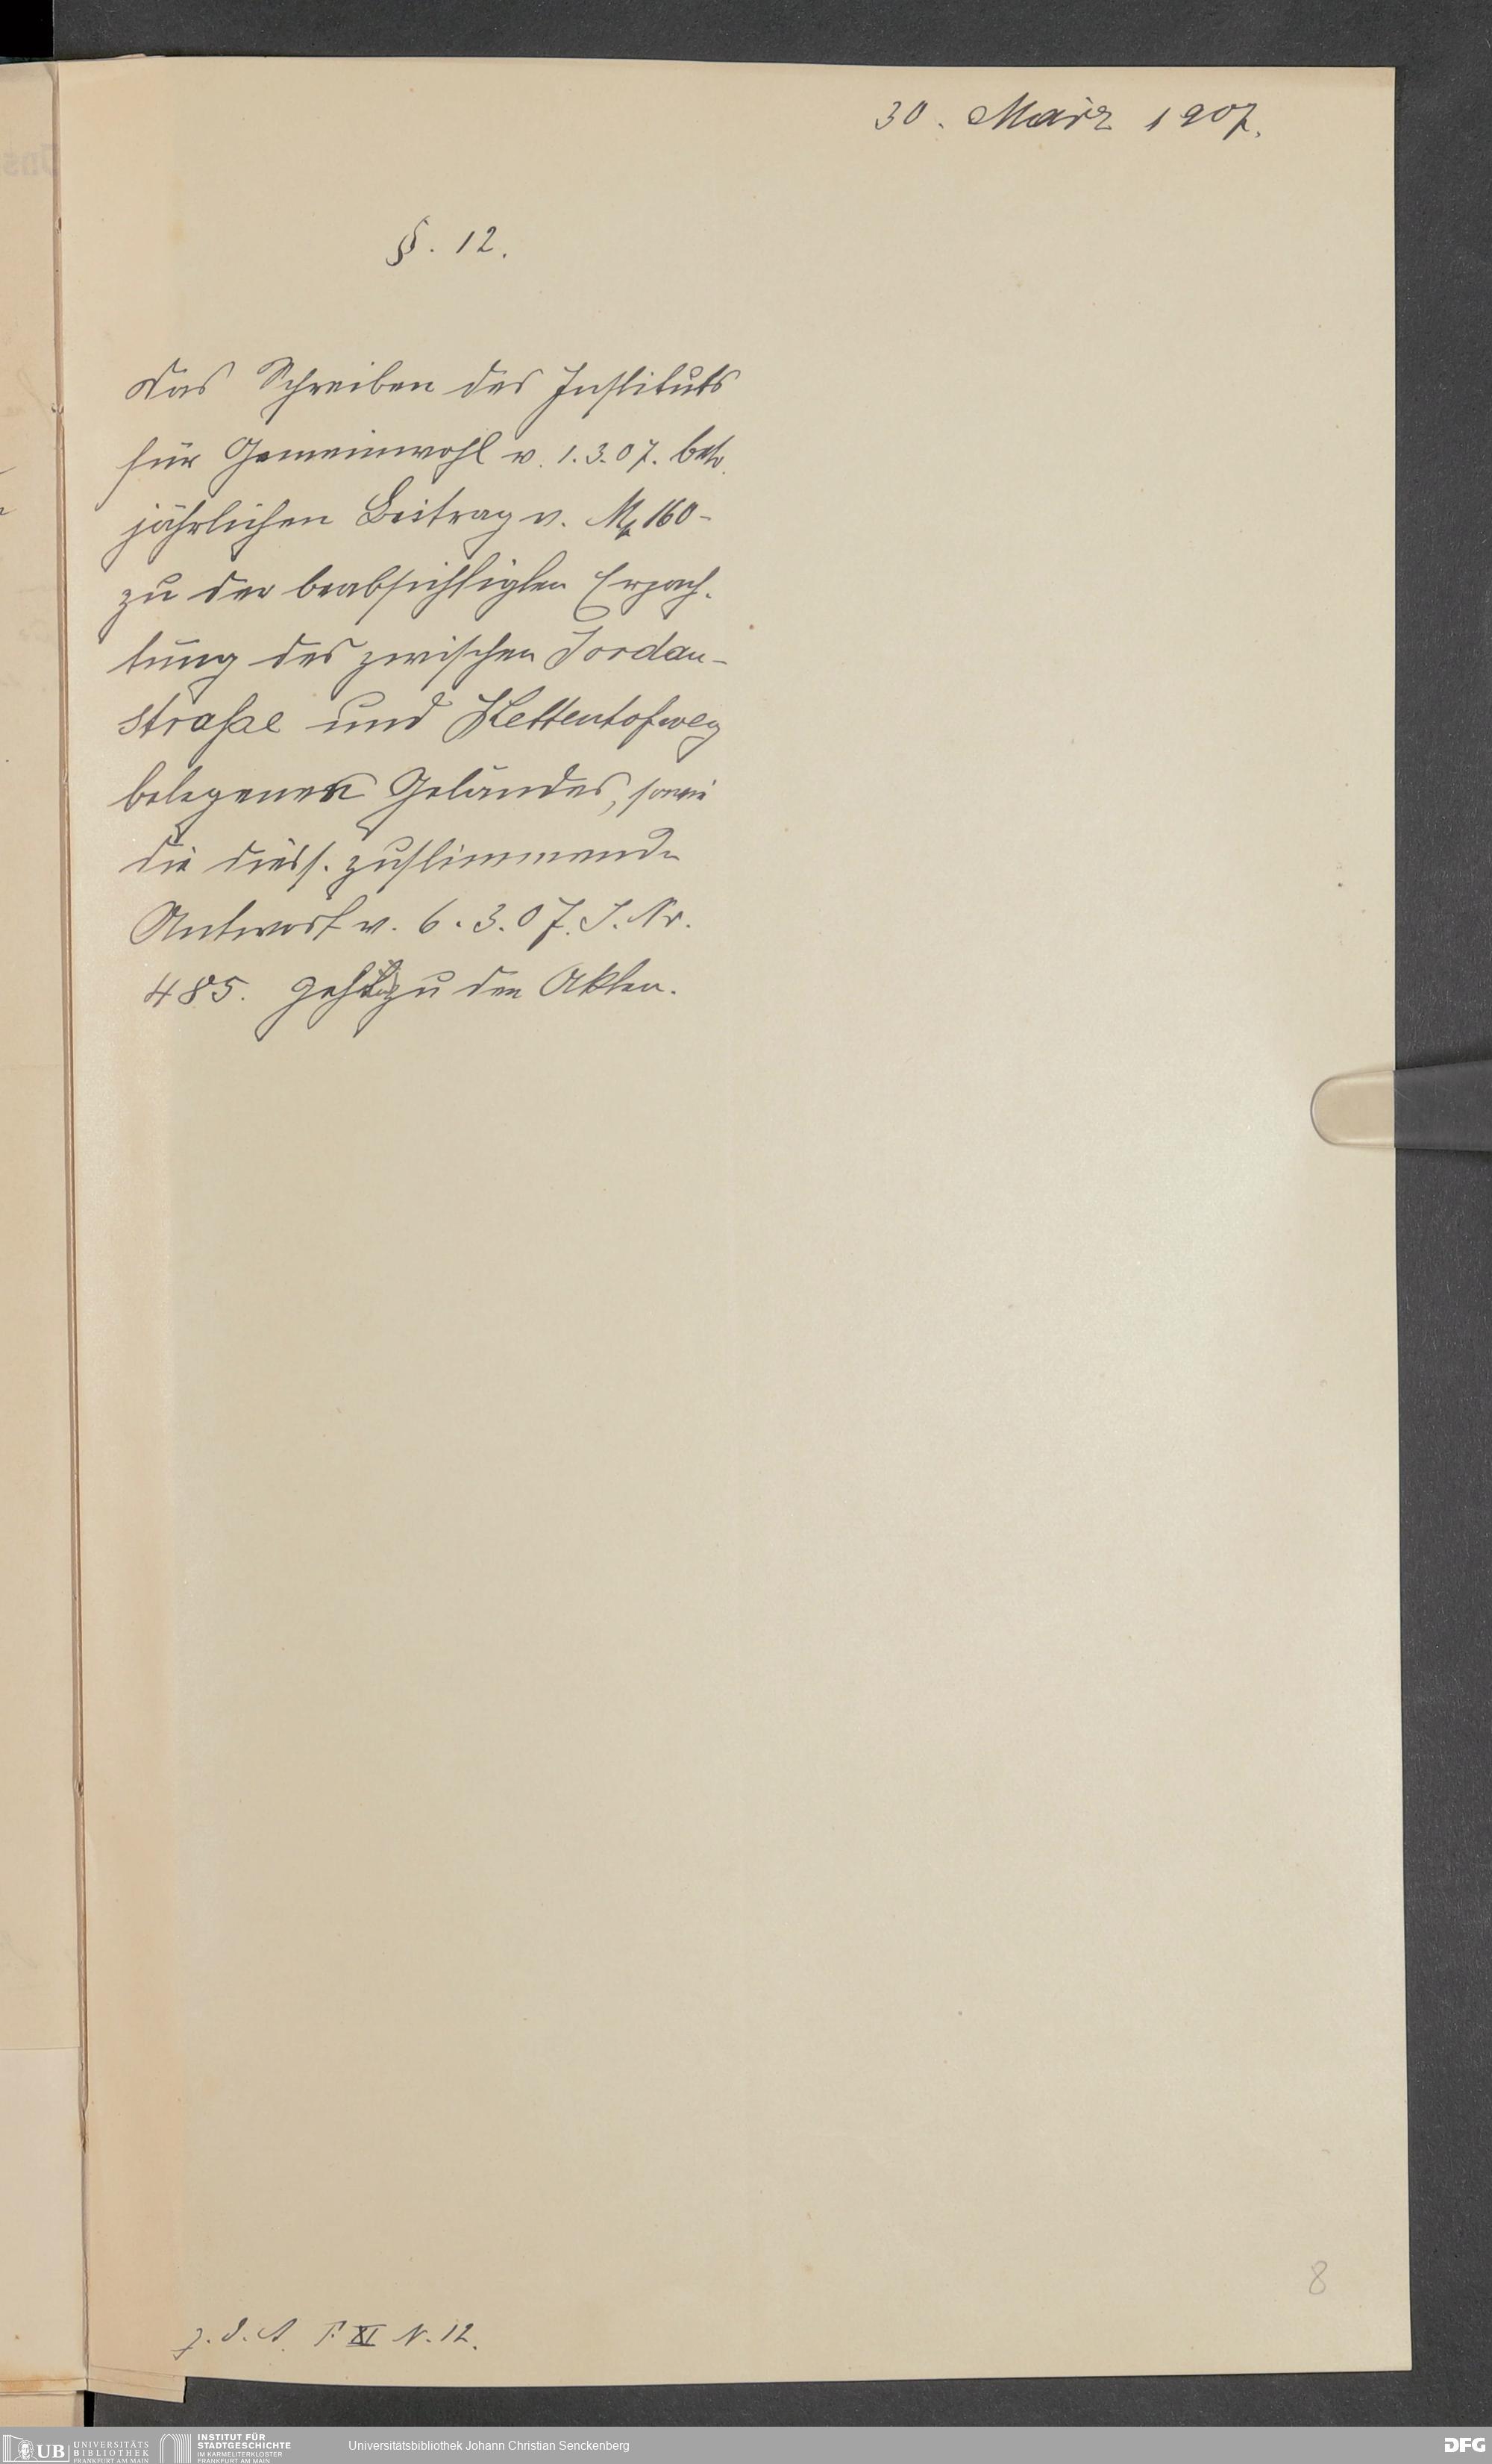 30. März 1907.
§. 12.
Das Schreiben des Instituts
für Gemeinwohl v. 1.3.07. betr.
jährlichen Beitrag v. M 160-
zu der beabsichtigten Erpach-
tung des zwischen Jordan-
straße und Kettenhofweg
belegenen Geländes, sowie
die diess. zustimmende
Antwort v. 6.3.07. J. Nr.
485. zu den Akten.
z. d. A. F. XI N. 12.
8
UB UNIVERSITÄTS
BIBLIOTHEK
FRANKFURT AM MAIN
INSTITUT FÜR
STADTGESCHICHTE
IM KARMELITERKLOSTER
FRANKFURT AM MAIN
Universitätsbibliothek Johann Christian Senckenberg
DFG